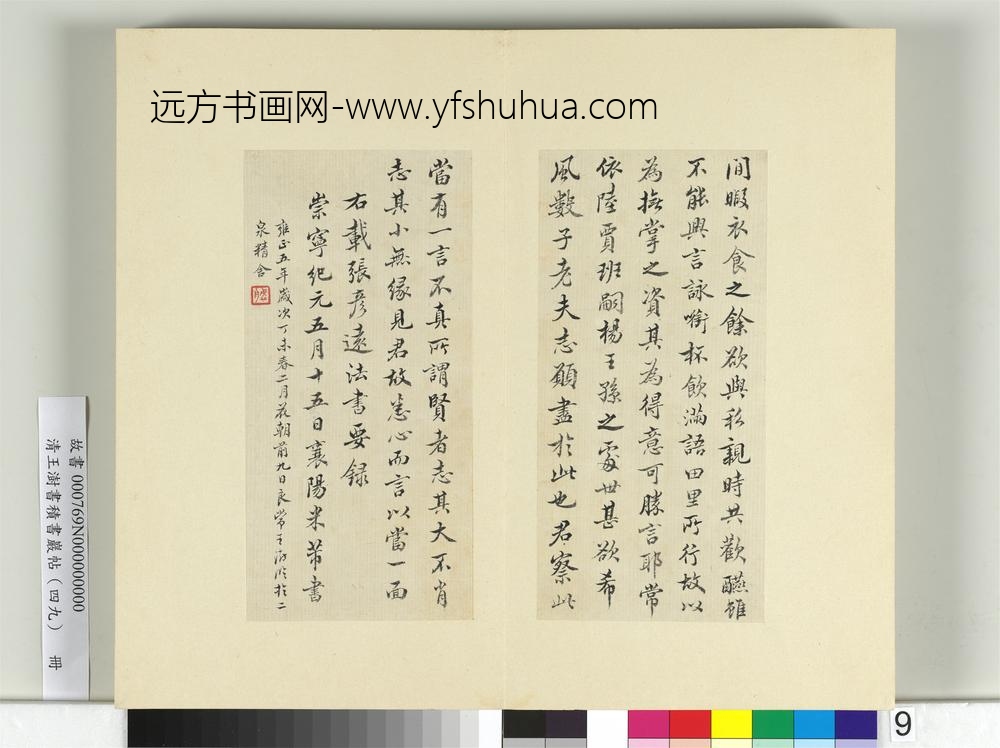 远方书画网-www.yfshuhua.com
間暇衣食之餘欲與私親時共歡醼雖
不能興言詠嚼杯飲滿語田里所行故以
為撫掌之資其為得意可勝言耶常
依陸賈班嗣楊王孫之處世甚欲希
風數子老夫志願盡於此也君察此
當有一言不真所謂賢者志其大不肖
志其小無緣見君故悉心而言以當一面
右載張彥遠法書要録
崇寧紀元五月十五日襄陽米芾書
雍正五年歲次丁未春二月花朝前九日良常王澍臨於二
泉精舍
故書 000769N000000000
清王澍書積書巖帖（四九） 冊
9